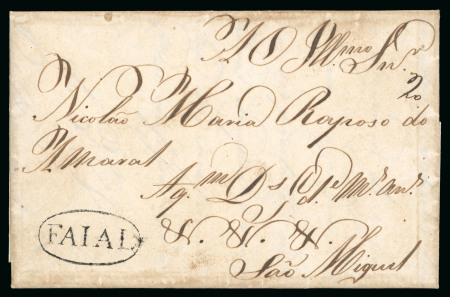 Ao Illmo Snr
20
Nicoláo Maria Raposo do
Amaral
Ds Gde ms ans
FAIAL
&. &. &.
São Miguel